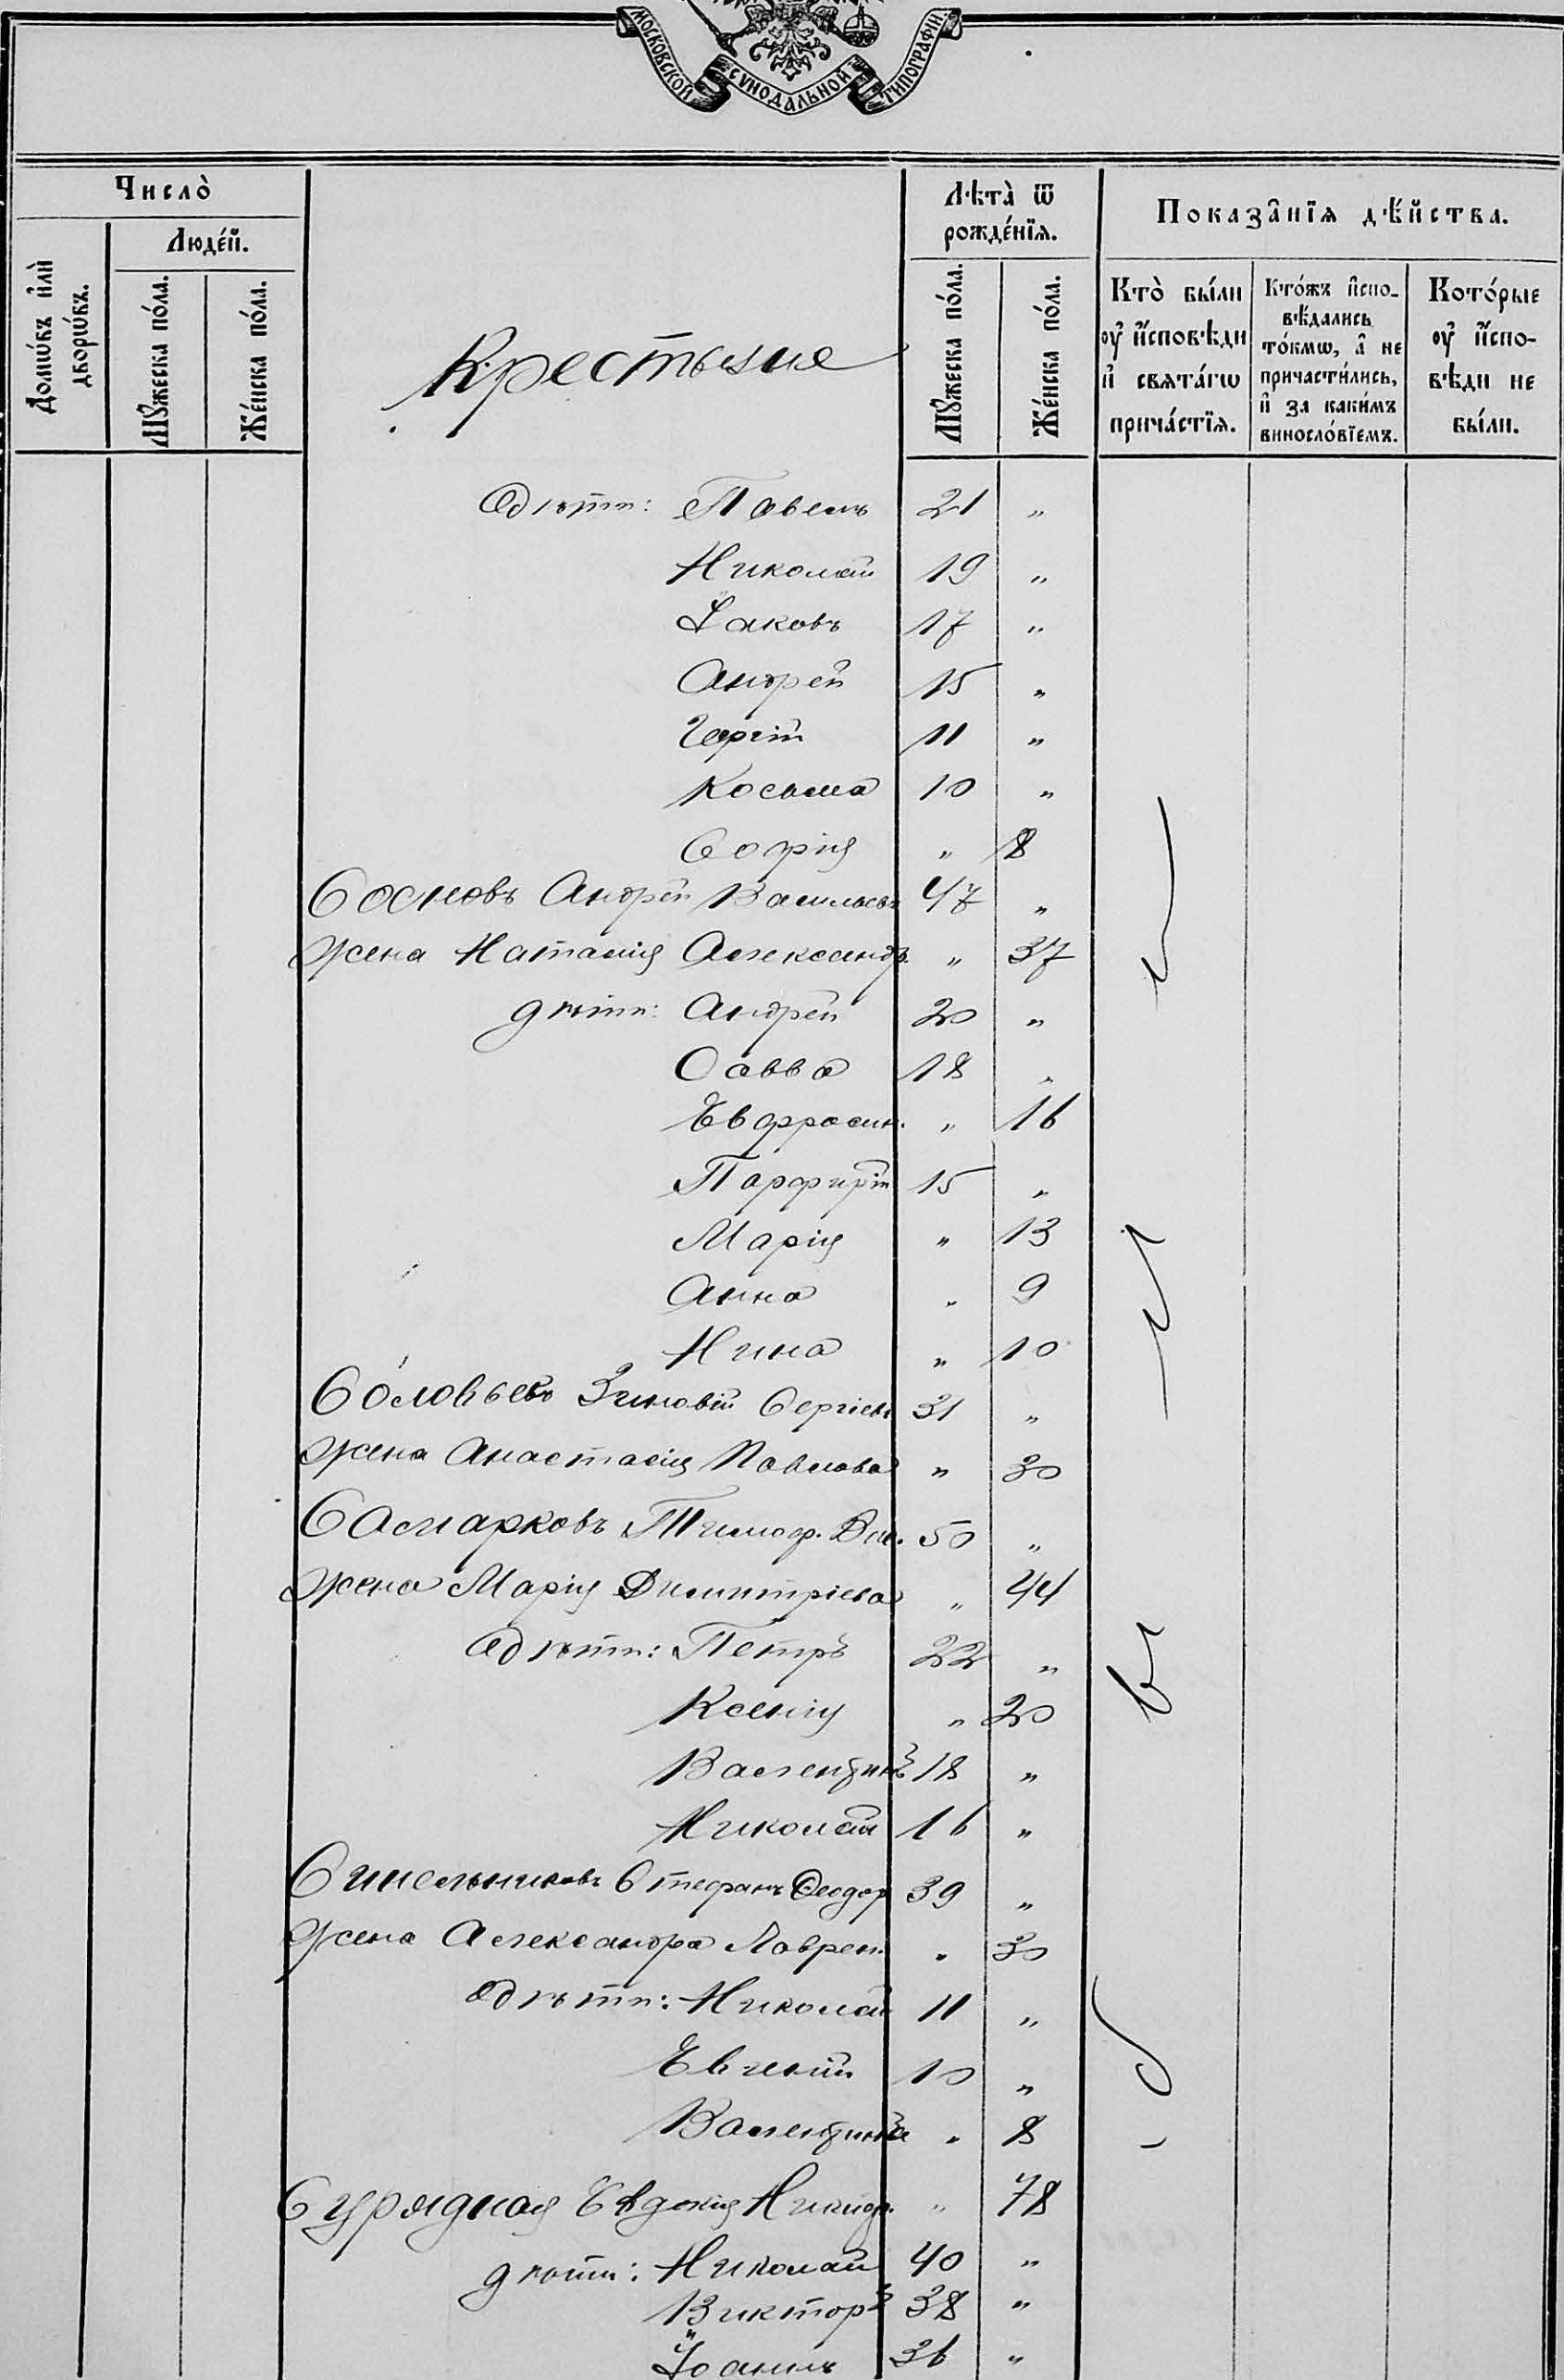 МОСКОВСКОЙ СѴНОДАЛЬНОЙ ТИПОГРАФІИ
Число̀
Людéй.
Домѡ́въ и҆лѝ дворѡ́въ.
Мꙋ́жеска по́ла.
Же́нска по́ла.
Крестьяне
Лѣта̀ ѿ рожде́нїѧ.
Мꙋ́жеска по́ла.
Же́нска по́ла.
Показа̑нїѧ дѣ́йства.
Кто̀ бы́ли оу҆ и҆́сповѣди и҆ свѧта́гѡ прича́стїѧ.
Кто́жъ и҆спо-вѣ́дались то́кмѡ, а҆ не причасти́лись, и҆ за каки́мъ винослóвїемъ.
Кото́рые оу҆ и҆́спо-вѣди не бы́ли.
дѣти: Павелъ 21 „
Николай 19 „
Іаковъ 17 „
Андрей 15 „
Сергій 11 „
Косьма 10 „
Софія „ 8
Сосновъ Андрей Васильевъ 47 „
жена Наталія Александр. „ 37
дѣти: Андрей 20 „
Савва 18 „
Евфросин. „ 16
Парфирій 15 „
Марія „ 13
Анна „ 9
Нина „ 10
Соловьевъ Зиновій Сергіев 31 „
жена Анастасія Павлова „ 30
Самарковъ Тимоф. Вас. 50 „
жена Марія Димитріева „ 44
дѣти: Петръ 22 „
Ксенія „ 20
Валентинъ 18 „
Николай 16 „
Синельниковъ Стефанъ Ѳеодор 39 „
жена Александра Лаврен. „ 30
дѣти: Николай 11 „
Евгеній 10 „
Валентина „ 8
Сурядная Евдокія Никиф. „ 78
дѣти: Николай 40 „
Викторъ 38 „
Іоаннъ 36 „